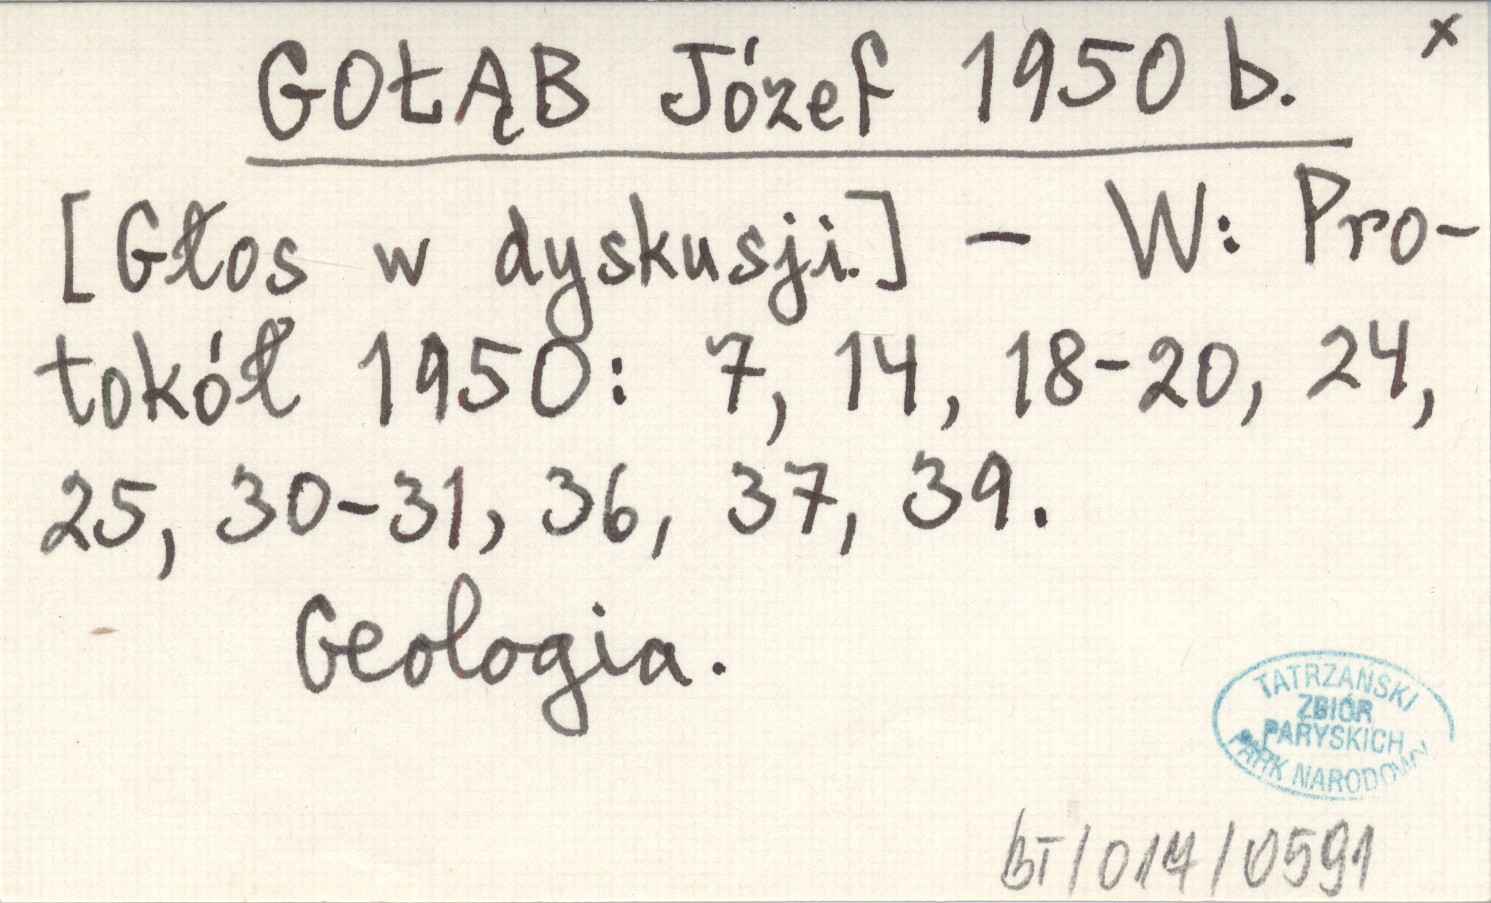 x
GOŁĄB Józef 1950 b.
[Głos w dyskusji.] - W: Pro-
tokół 1950: 7, 14, 18-20, 24,
25, 30-31, 36, 37, 39.
Geologia.
TATRZAŃSKI
ZBIÓR
PARYSKICH
PARK NARODOWY
bT/014/0591